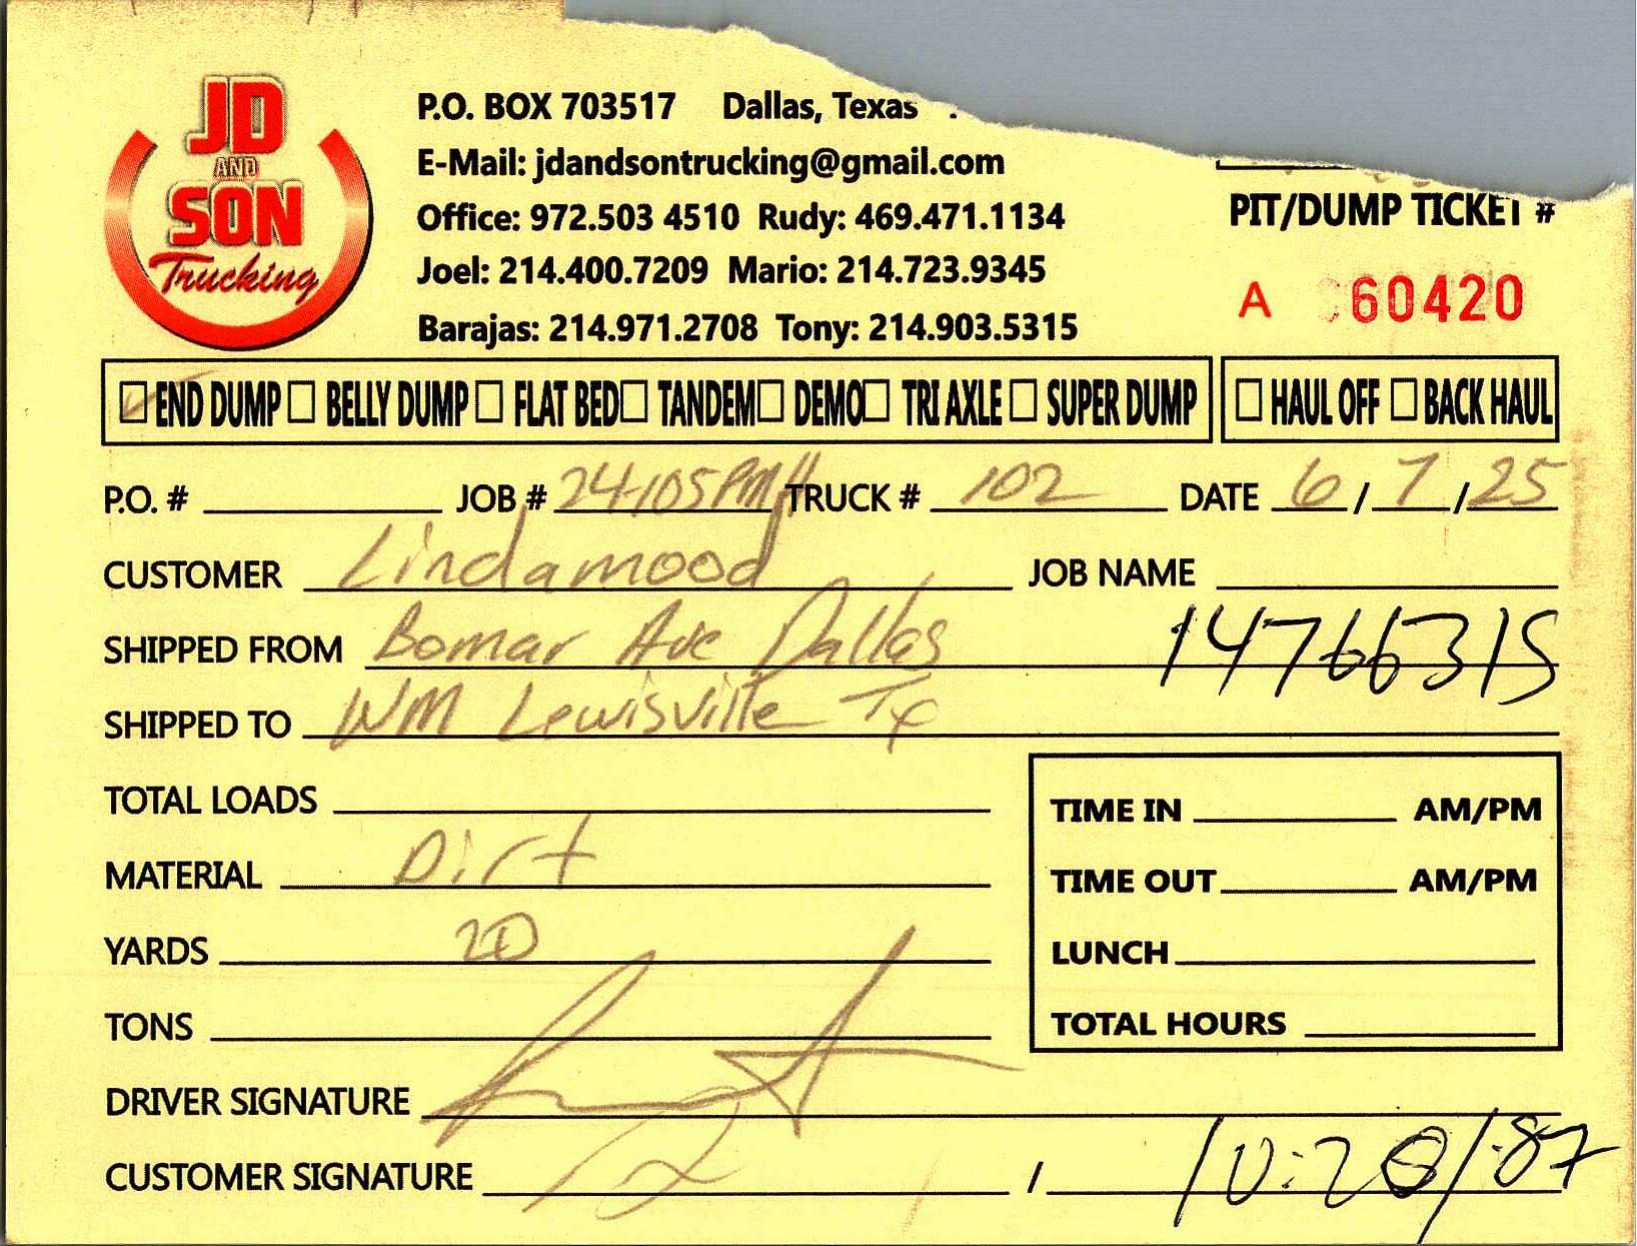 JD AND SON Trucking
P.O. BOX 703517 Dallas, Texas
E-Mail: jdandsontrucking@gmail.com
Office: 972.503 4510 Rudy: 469.471.1134
Joel: 214.400.7209 Mario: 214.723.9345
Barajas: 214.971.2708 Tony: 214.903.5315
PIT/DUMP TICKET #
A 60420
☑ END DUMP ☐ BELLY DUMP ☐ FLAT BED ☐ TANDEM ☐ DEMO ☐ TRI AXLE ☐ SUPER DUMP ☐ HAUL OFF ☐ BACK HAUL
P.O. # JOB # 24-105 TRUCK # 102 DATE 6/7/25
CUSTOMER Lindamood JOB NAME
SHIPPED FROM Bomar Ave Dallas 14766315
SHIPPED TO WM Lewisville Tx
TOTAL LOADS
MATERIAL Dirt
YARDS 20
TONS
DRIVER SIGNATURE
CUSTOMER SIGNATURE /
TIME IN AM/PM
TIME OUT AM/PM
LUNCH
TOTAL HOURS